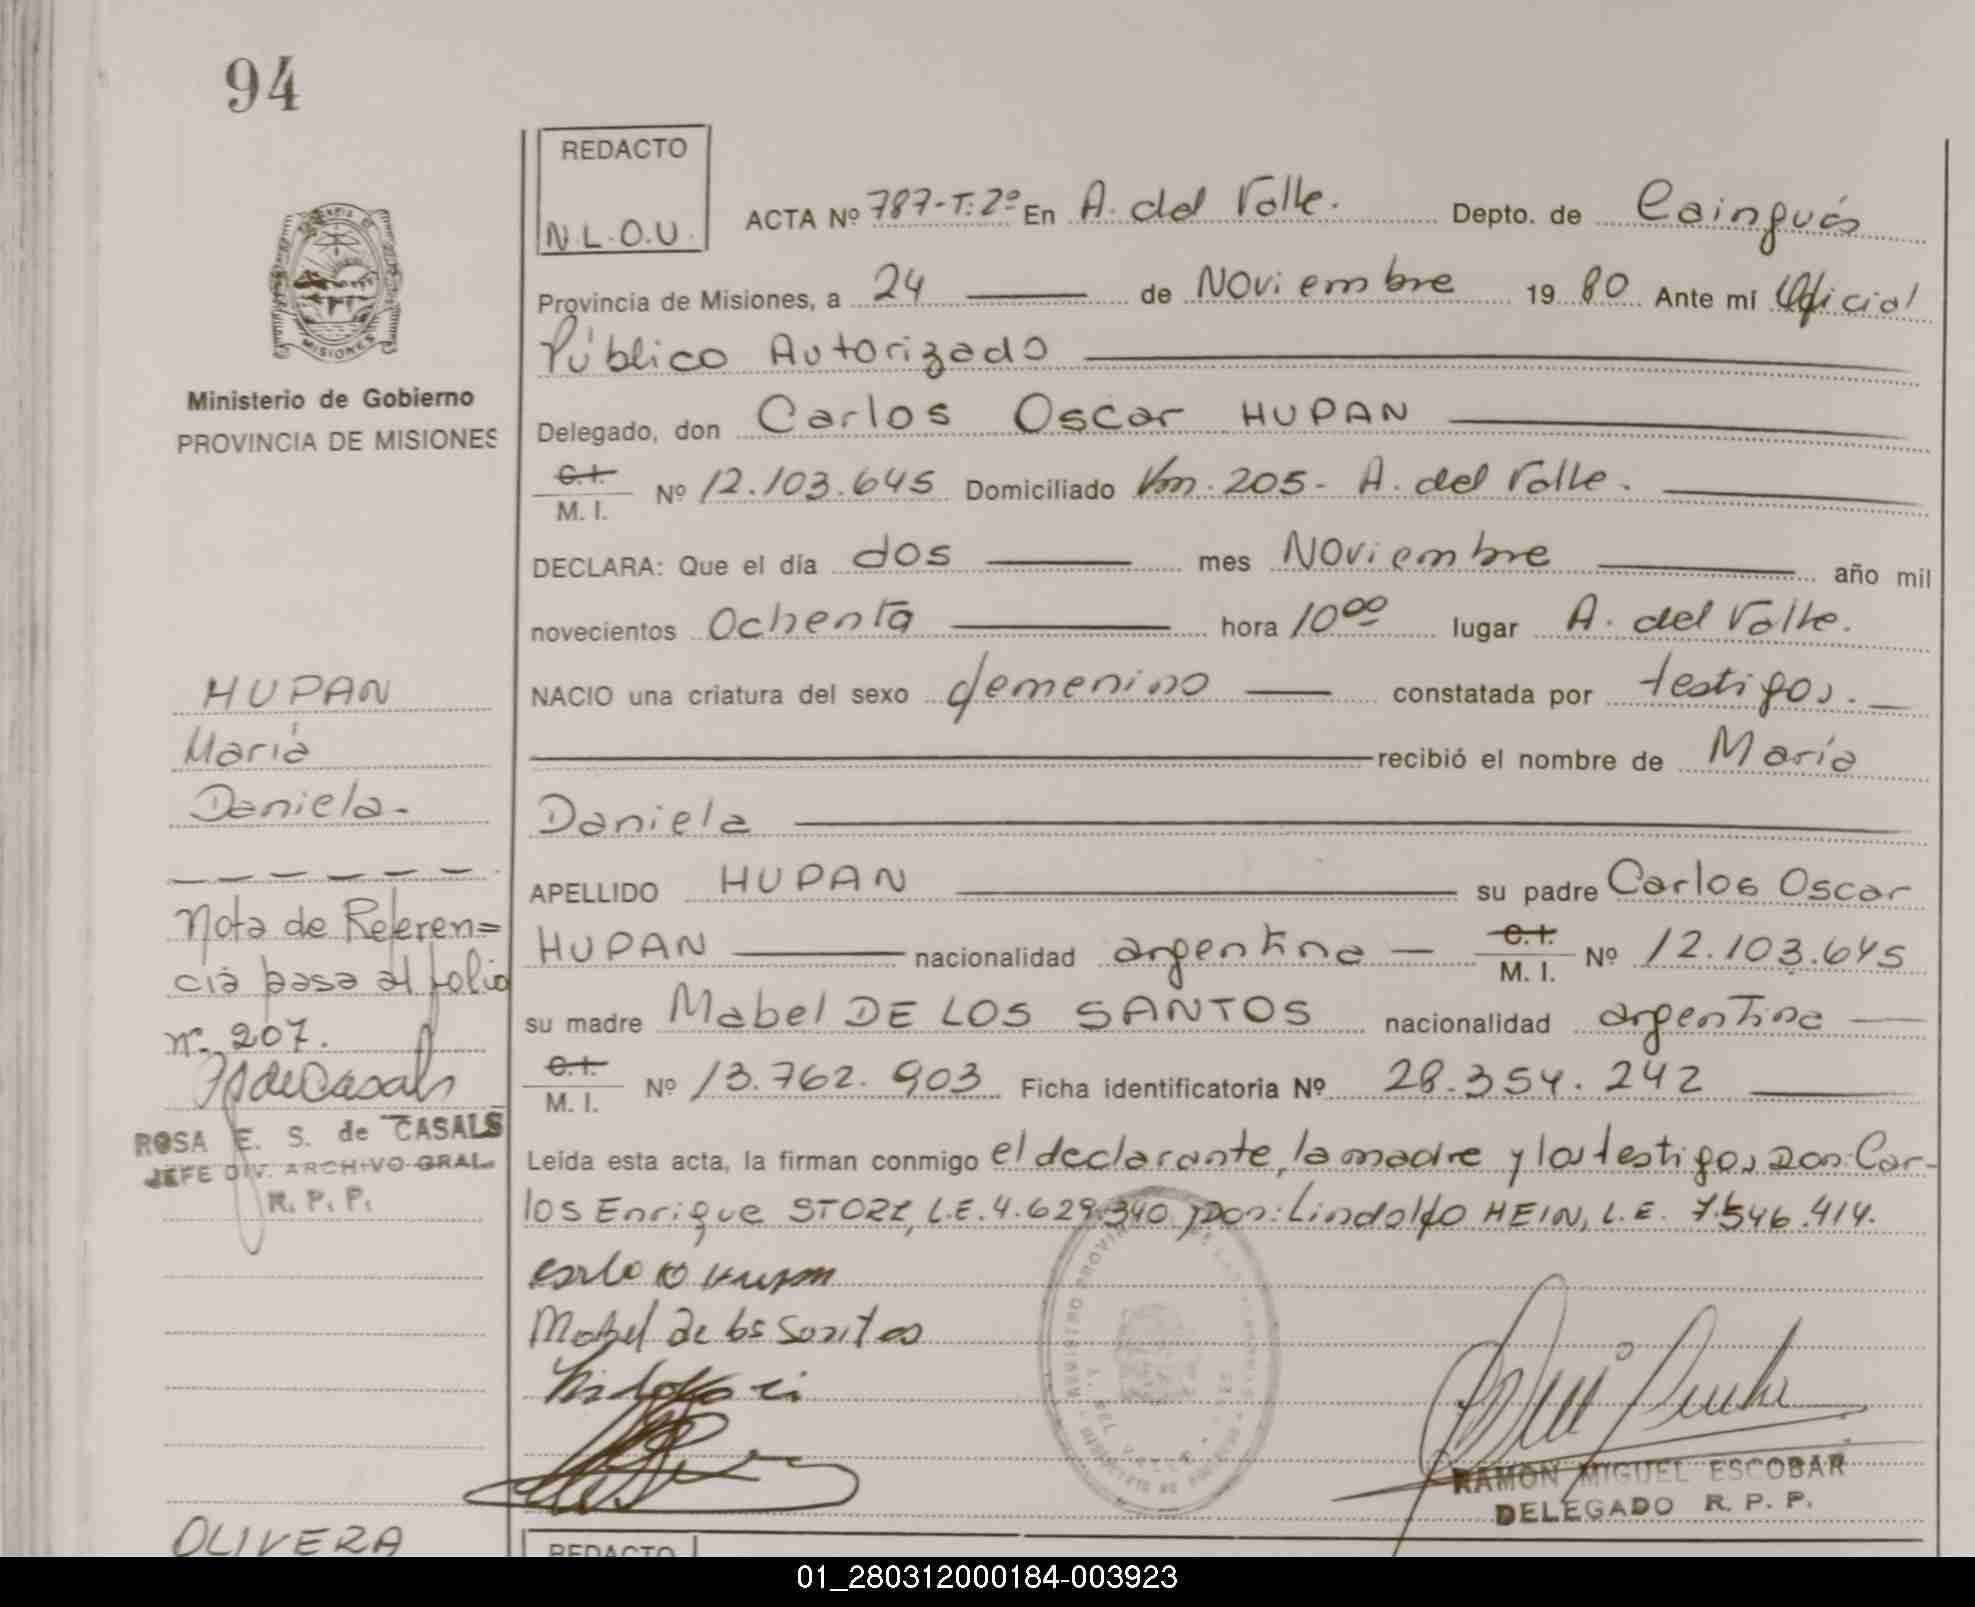 94
REDACTO
N.L.O.U.
ACTA Nº 787-T:2º En A. del Valle. Depto. de Cainguás
Provincia de Misiones, a 24 de Noviembre 1980 Ante mí Oficial
Público Autorizado
MISIONES
Ministerio de Gobierno
PROVINCIA DE MISIONES
Delegado, don Carlos Oscar HUPAN
C.I.
M. I. Nº 12.103.645 Domiciliado Km. 205- A. del Valle.
DECLARA: Que el día dos mes Noviembre año mil
novecientos Ochenta hora 10⁰⁰ lugar A. del Valle.
NACIO una criatura del sexo femenino constatada por testigos.
recibió el nombre de María
Daniela
APELLIDO HUPAN su padre Carlos Oscar
HUPAN nacionalidad argentina C.I. M. I. Nº 12.103.645
su madre Mabel DE LOS SANTOS nacionalidad argentina
C.I.
M. I. Nº 13.762.903 Ficha identificatoria Nº 28.354.242
Leída esta acta, la firman conmigo el declarante, la madre y los testigos don: Car-
los Enrique L.E. 4.629.340 don: Lindolfo HEIN, L.E. 7.546.414.
HUPAN
María
Daniela-
Nota de Referen=
cia pasa al folio
nº. 207.
ROSA E. S. de CASALS
JEFE DIV. ARCHIVO GRAL.
R. P. P.
Mabel de los Santos
RAMON MIGUEL ESCOBAR
DELEGADO R. P. P.
OLIVERA
REDACTO
01_280312000184-003923